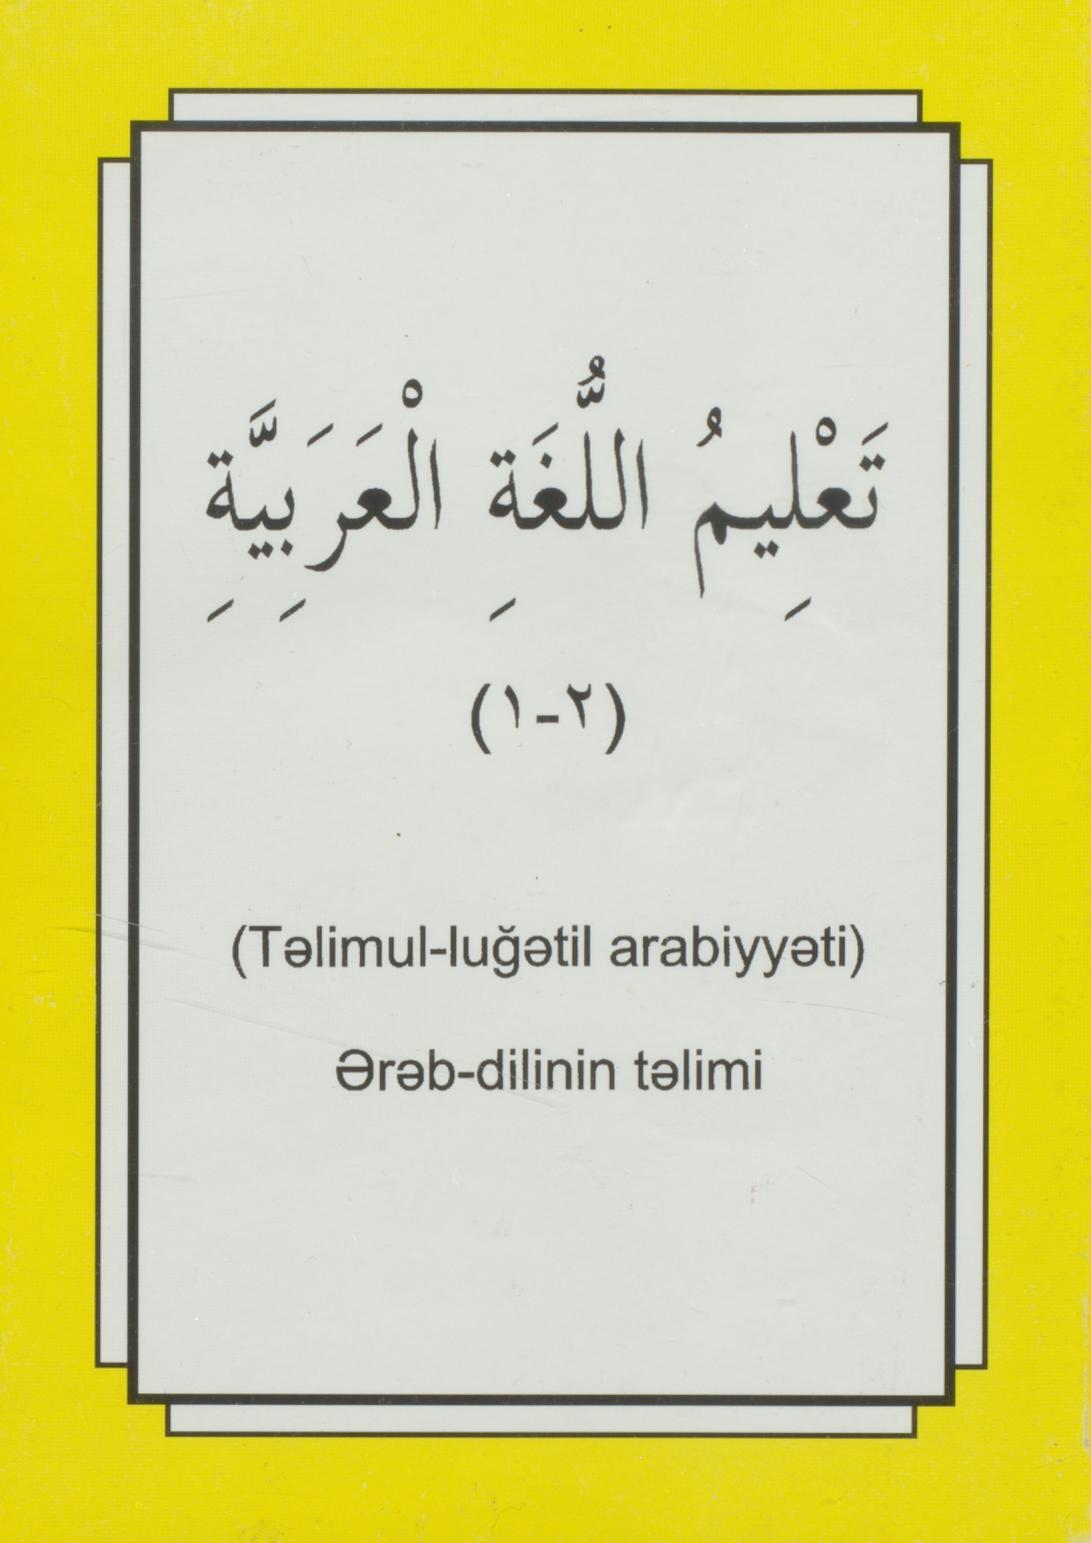 تَعْلِيمُ اللُّغَةِ الْعَرَبِيَّةِ
(١-٢)
(Təlimul-luğətil arabiyyəti)
Ərəb-dilinin təlimi